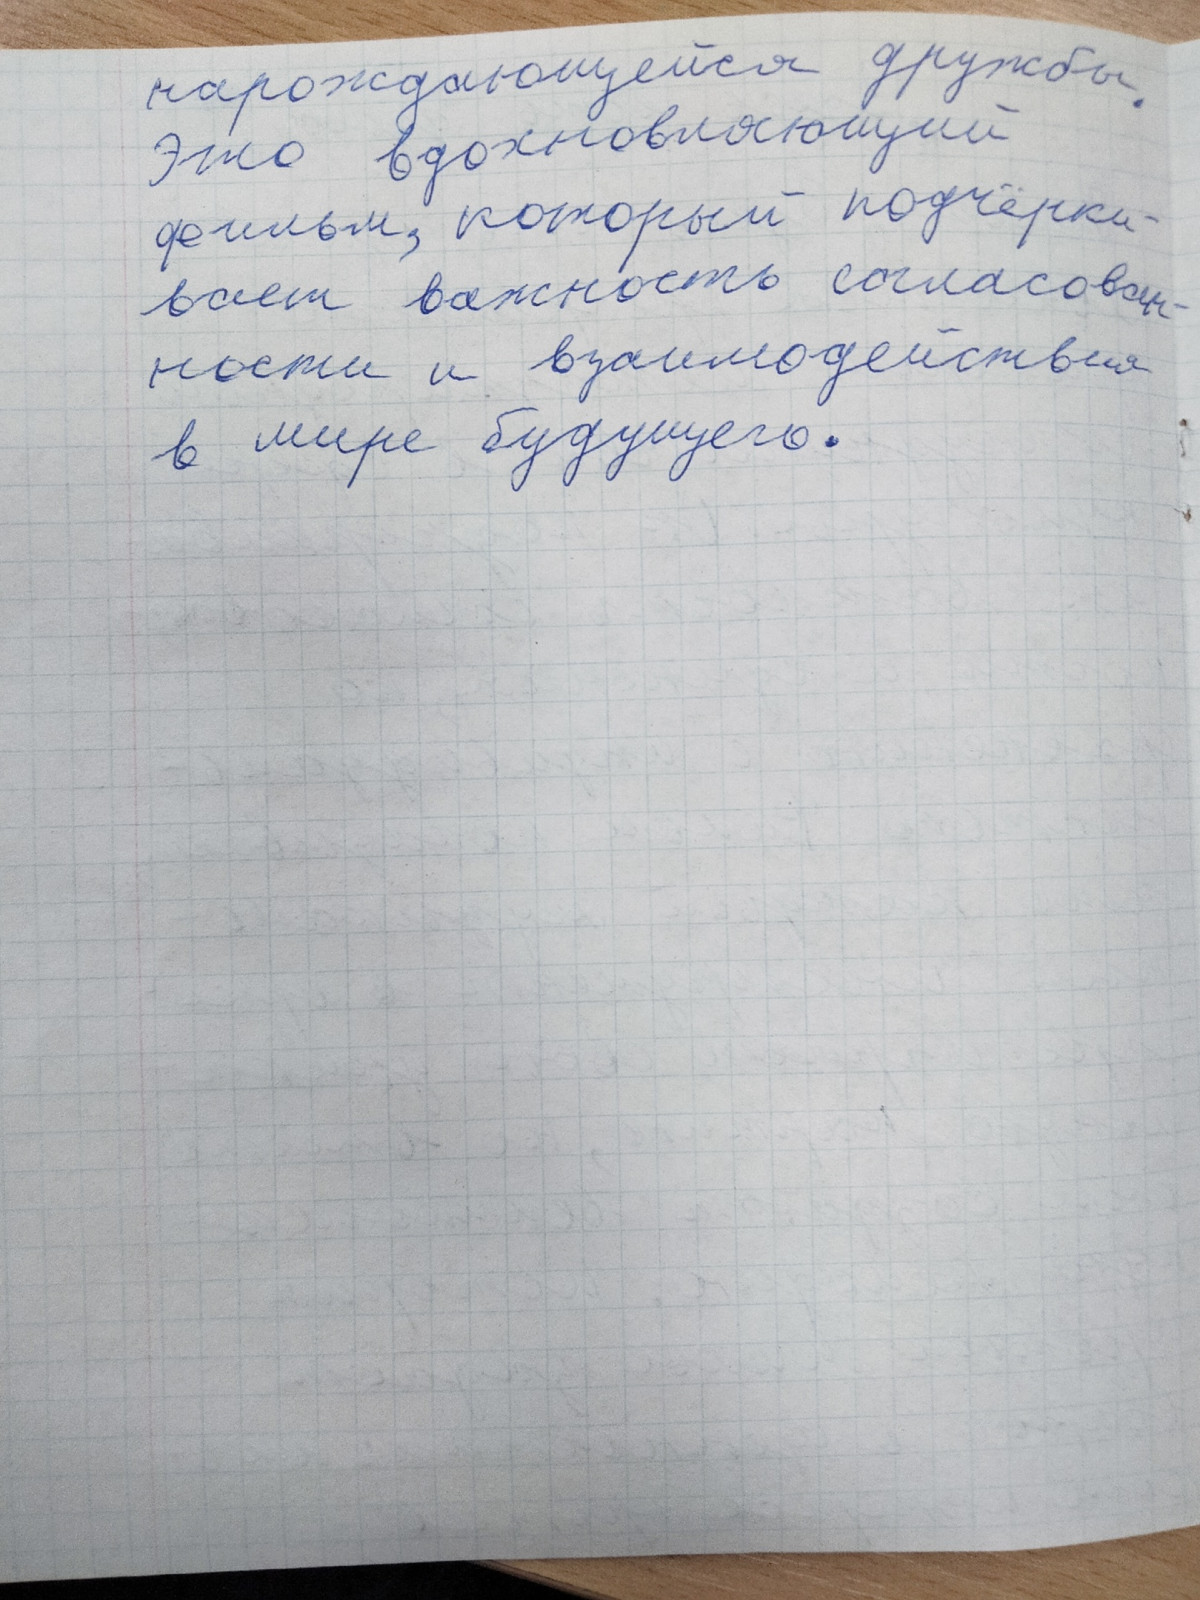 нарождающейся дружбы.
Это вдохновляющий
фильм, который подчёрки-
вает важность согласован-
ности и взаимодействия
в мире будущего.